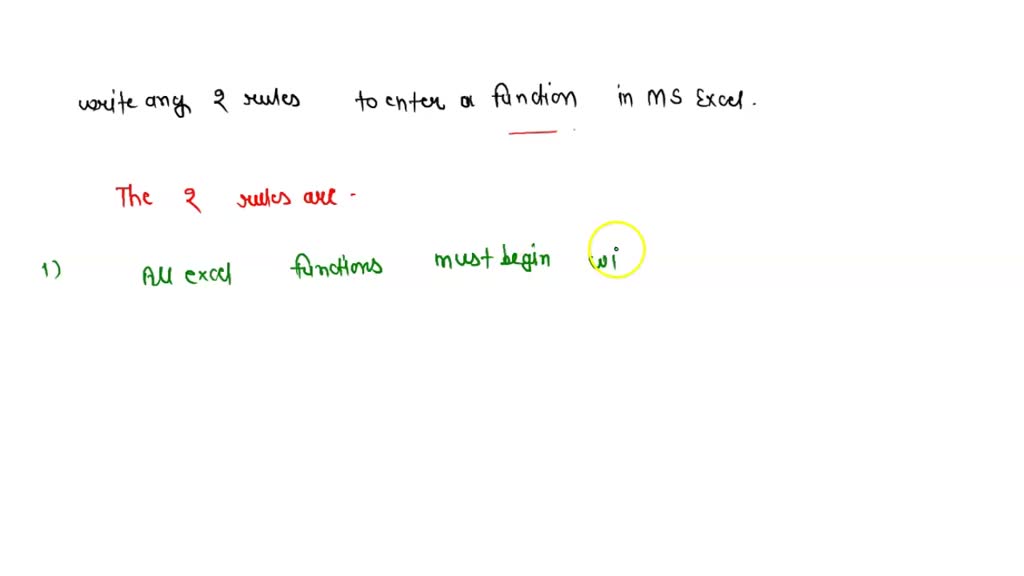 write any 2 rules to enter a function in MS Excel.
The 2 rules are -
1) All excel functions must begin wi